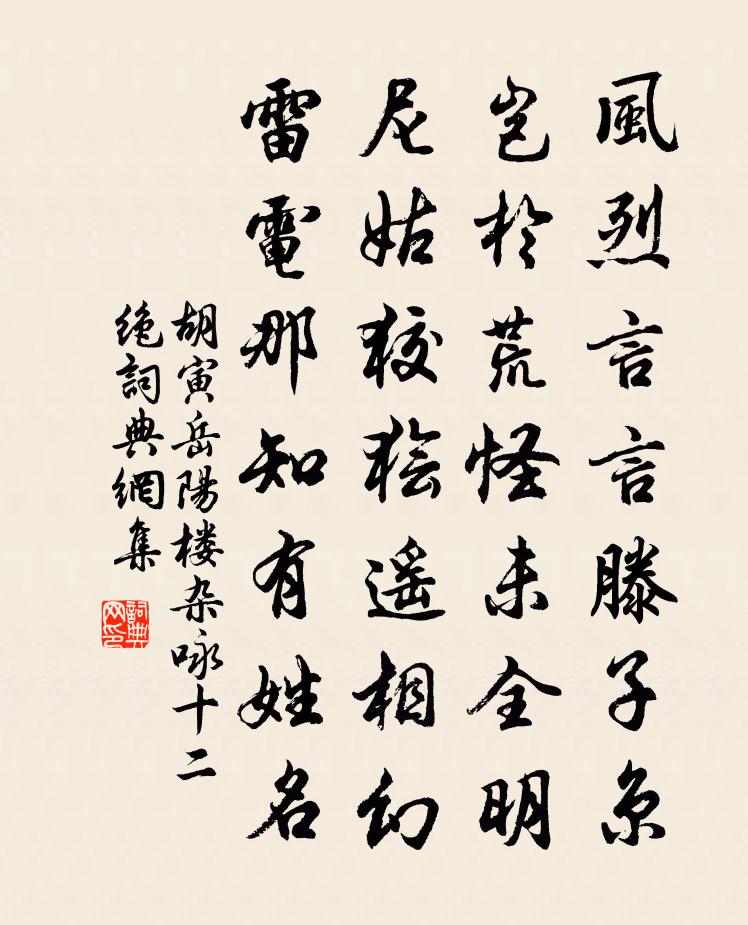 風烈言言滕子京
豈於荒怪未全明
尼姑狡獪遥相幻
雷電那知有姓名
胡寅岳陽楼杂咏十二
绝詞典網集
詞典网印